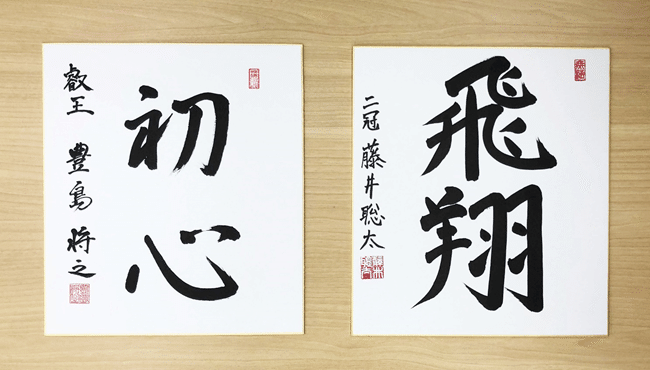 初心
叡王 豊島将之
飛翔
二冠 藤井聡太